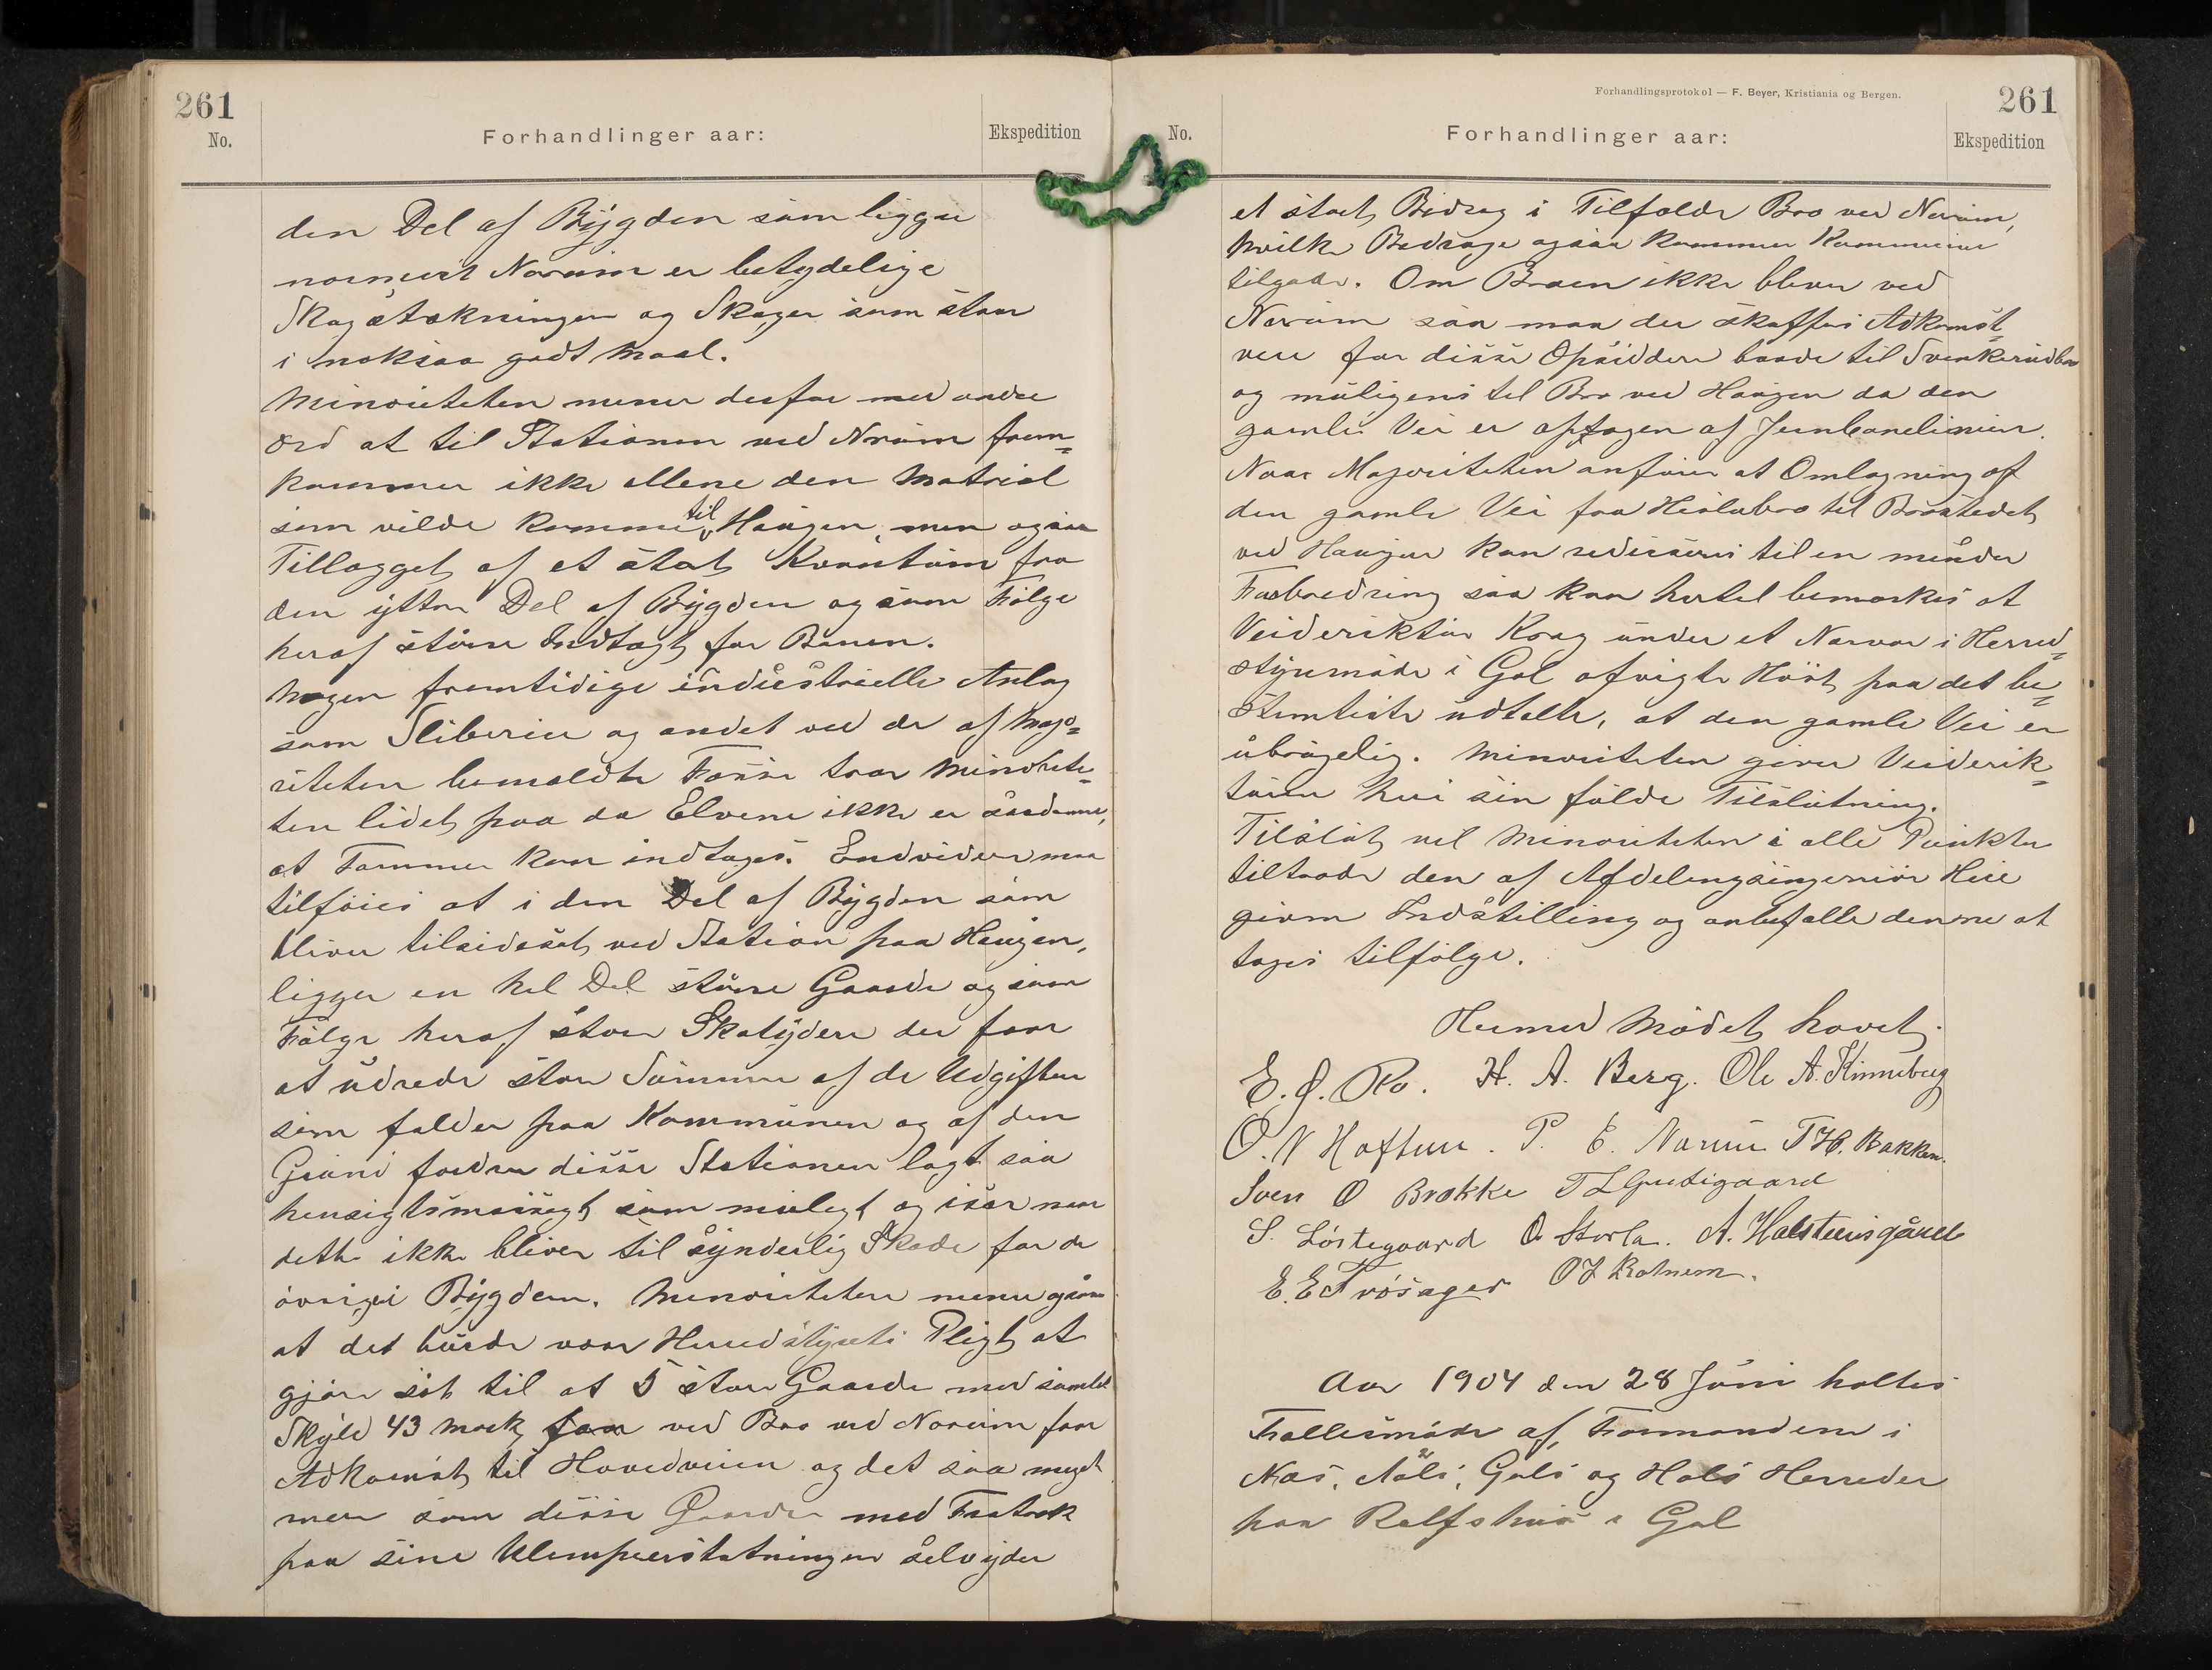 261
No.
Forhandlinger aar:
Ekspedition
den Del af Bygden som ligger
nærmest Narum er betydelige
Skogstrækninger og Skoger som staar
i noksaa godt Maal.
Minoriteten mener derfor med andre
Ord at til Stationen ved Narum frem-
kommer ikke allene den Material
som vilde komme til Haugen, men ogsaa
Tillægget af et stort Kvantum fra
den yttre Del af Bygden og som Følge
heraf større Indtægt for Banen.
Nogen fremtidige industrielle Anlæg
som Sliberier og andet ved de af Majo-
riteten bemældte Fosse tror Minorite-
ten lidet paa da Elvene ikke er saadanne,
at Tømmer kan indtages. Endvidere maa
tilføies at i den Del af Bygden som
bliver tilsidesat ved Station paa Haugen,
ligger en hel Del større Gaarde og som
Følge heraf store Skatydere der faar
at udrede store Summer af de Udgifter
som falder paa Kommunen og af den
Grund fordrer disse Stationen lagt saa
hensigtsmæssigt som muligt og især naar
dette ikke bliver til synderlig Skade for de
øvrige Bygden. Minoriteten mener
at det burde være Herredstyrets Pligt at
gjøre sit til at 5 store Gaarde med samlet
Skyld 43 Mark faar ved Bro ved Narum faar
Adkomst til Hovedveien og det saa meget
mer som disse Gaarder med Fratræk
paa sine Ulempeerstatninger selv yder
Forhandlingsprotokol — F. Beyer, Kristiania og Bergen.
261
No.
Forhandlinger aar:
Ekspedition
et stort Bidrag i Tilfælde Bro ved Narum,
hvilke Bedrage ogsaa kommer Kommunen
tilgode. Om Broen ikke bliver ved
Narum saa maa der skaffes Adkomst-
veie for disse Opsiddere baade til Svenkerudbro
og muligens til Bro ved Haugen da den
gamle Vei er optagen af Jernbanelinien.
Naar Majoriteten anfører at Omlægning af
den gamle Vei fra Heslabro til Brostedet
ved Haugen kan reduseres til en mindre
Forbedring saa kan hertil bemærkes at
Veidirektør Krag under et Nærvær i Herred-
styremøde i Gol afvigte Høst paa det be-
stemteste udtalte, at den gamle Vei er
ubrugelig. Minoriteten giver Veidirek-
tøren heri sin fulde Tilslutning.
Tilslut vil Minoriteten i alle Punkter
tiltræde den af Afdelingsingeniør Hiie
givne Indstilling og anbefalle denne at
tages tilfølge.
Hermed Mødet hævet.
E. J. Ro. H. A. Berg. Ole A. Kinneberg
O. N Hoftun. P. E. Narum T H. Bakken.
Sven O Brakke T L Grutigaard
S. Løstegaard O. Storla. A. Halsteinsgård
E. E Trøsager O J Rotnem.
Aar 1904 den 28 Juni holtes
Fællesmøde af Formændene i
Næs, Aals, Gols og Hols Herreder
paa Rolfshus i Gol